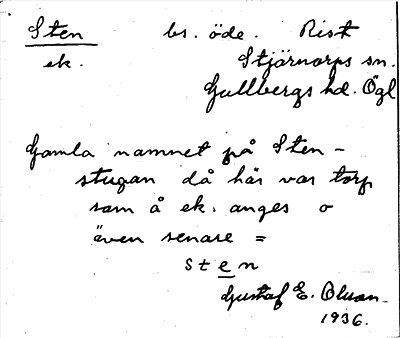 Sten bs. öde. Rist
ek. Stjärnorps sn.
Gullbergs hd. Ögl
Gamla namnet på Sten-
stugan då här var torp
som å ek. anges o
även senare =
sten
Gustaf E. Olsson
1936.